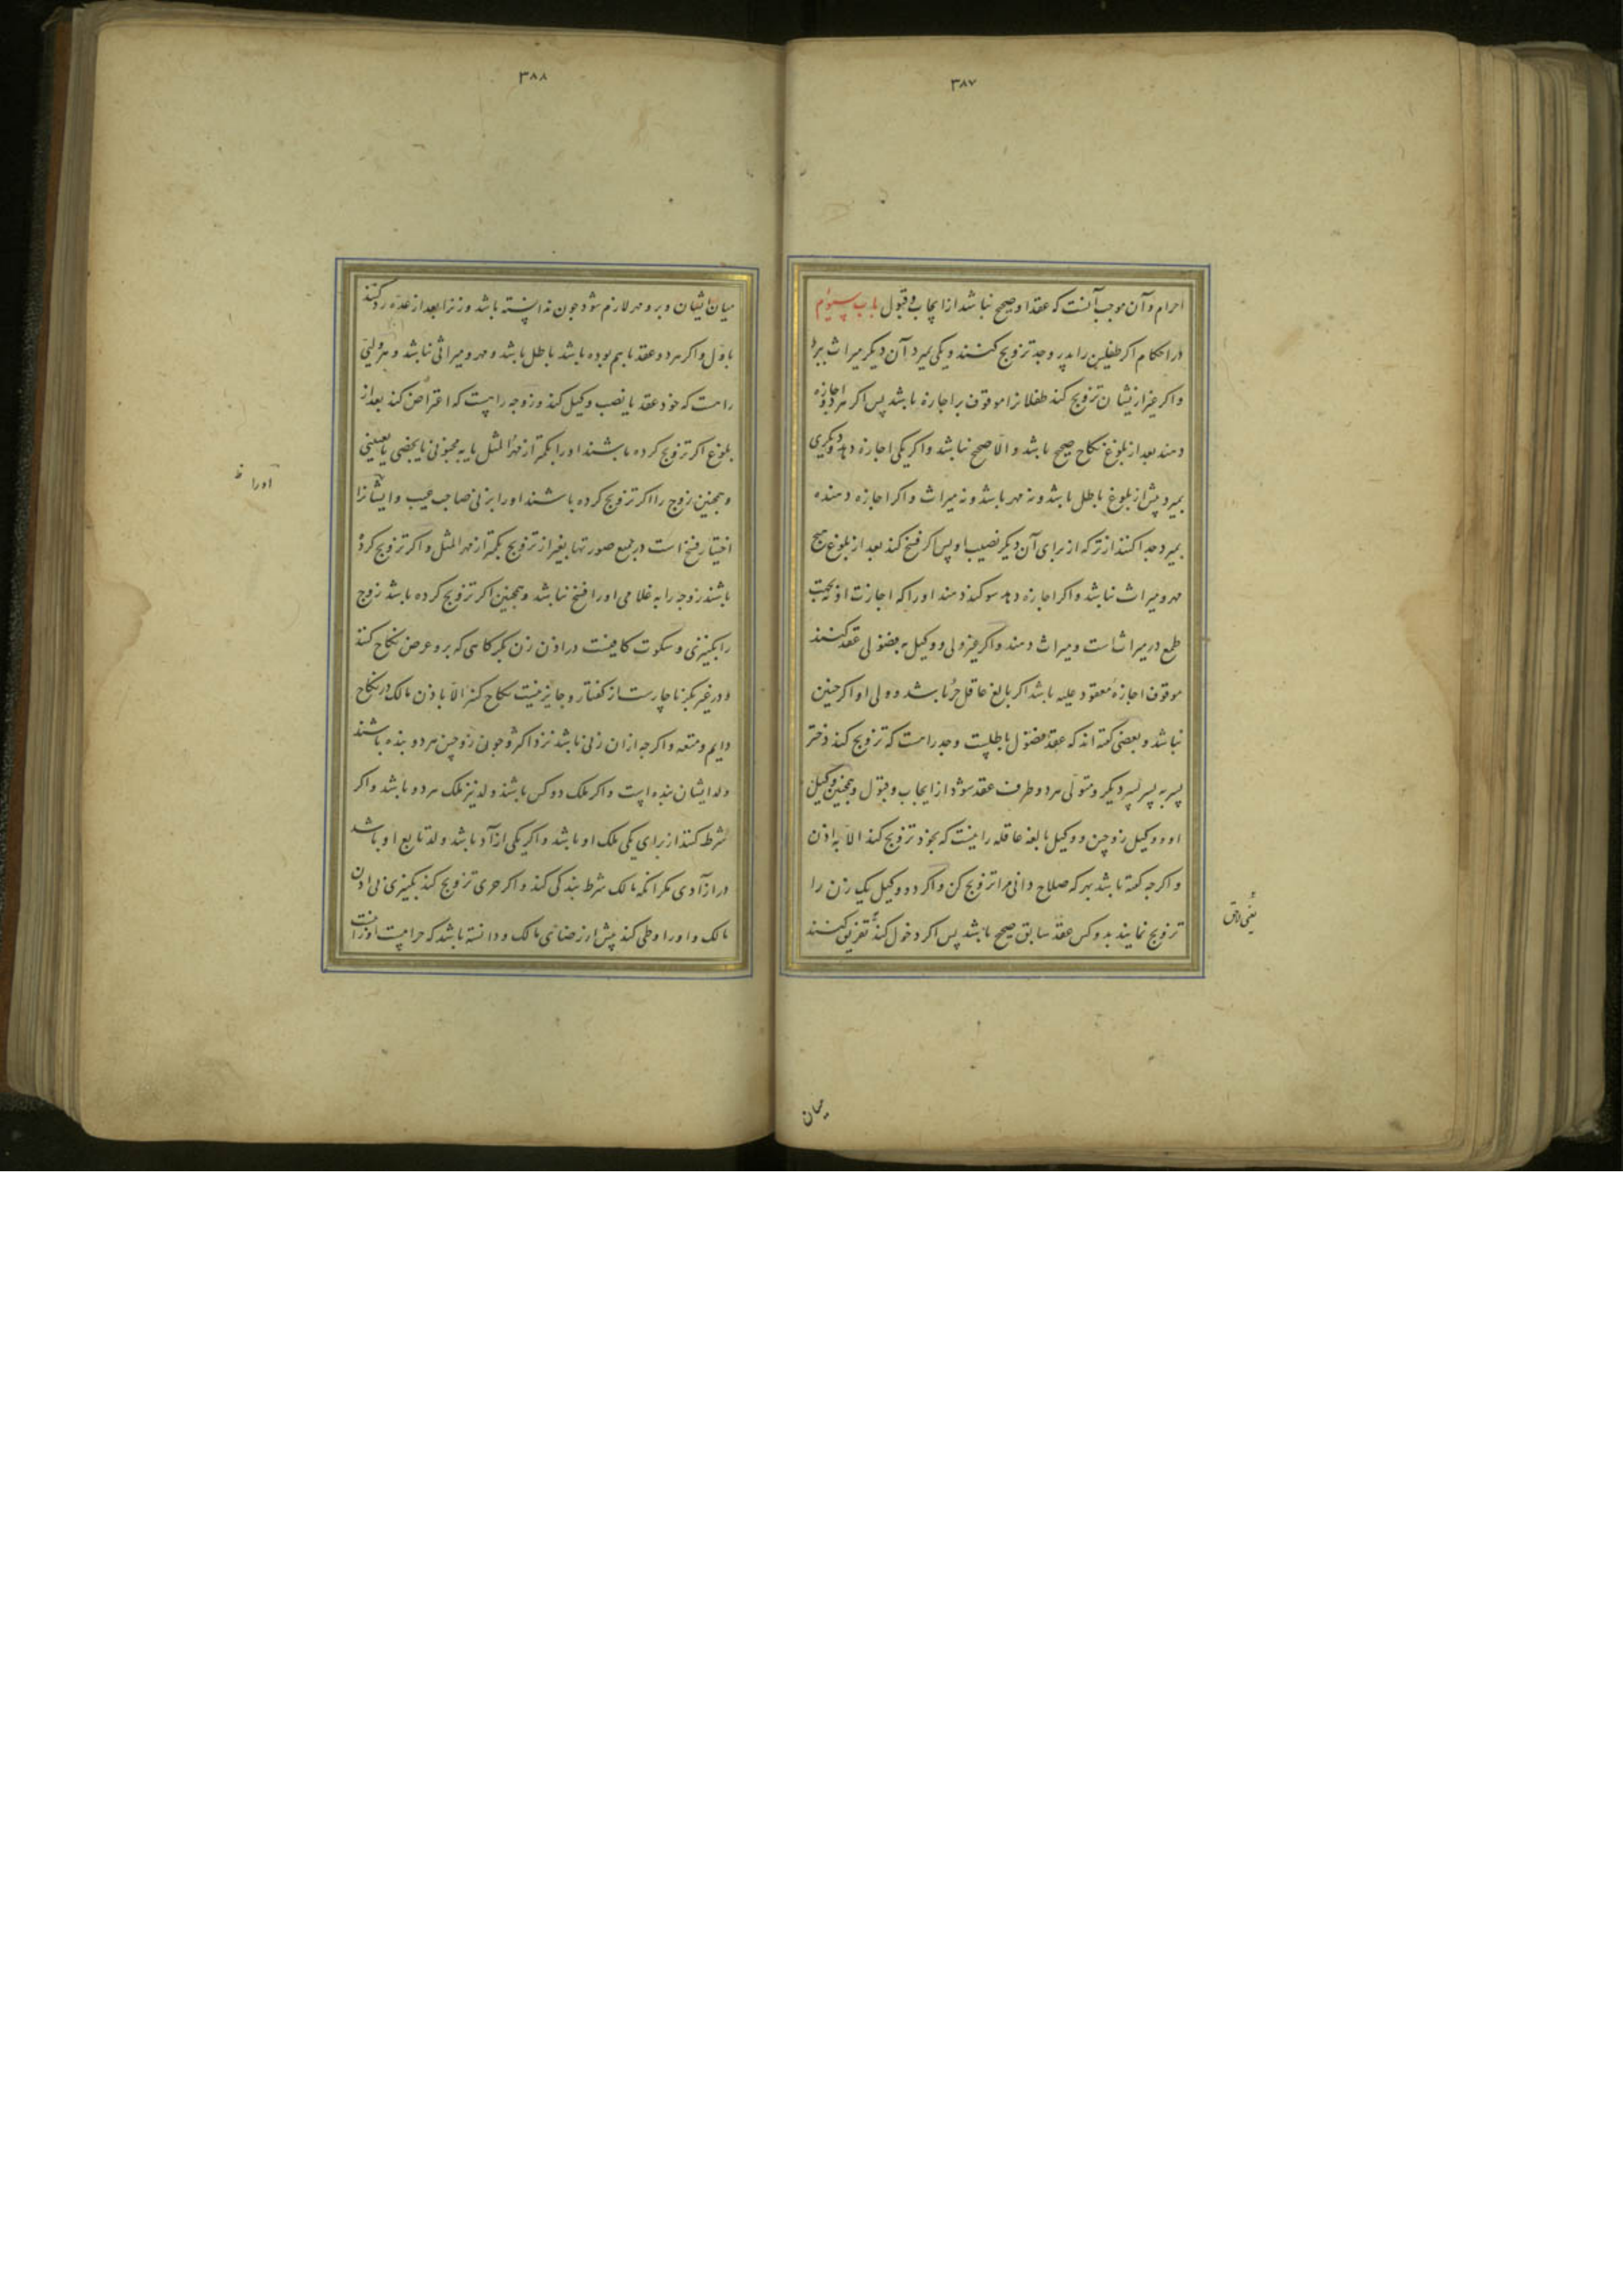 ٣٨٧
احرام وآن موجب آنست که عقد او صحیح نباشد از ایجاب و قبول باب سیوم
در احکام اکر طفلین را پدر وجد تزویج کنند ویکی بمیرد آن دیکر میراث برد
واکر غیر ازیشان تزویج کند طفلانرا موقوف بر اجازه باشد پس اکر هر دو اجازه
دهند بعد از بلوغ نکاح صحیح باشد والّا صحیح نباشد واکر یکی اجازه دهد ودیکری
بمیرد پیش از بلوغ باطل باشد ونه مهر باشد ونه میراث واکر اجازه دهنده
بمیرد جدا کنند از ترکه از برای آن دیکر نصیب او پس اکر فسخ کند بعد از بلوغ هیچ
مهر ومیراث نباشد واکر اجازه دهد سوکند دهند او را که اجازت او نه بجهت
طمع در میراثست ومیراث دهند واکر غیر ولی ووکیل به فضولی عقد کنند
موقوف اجازهٔ معقود علیه باشد اکر بالغ عاقل حرّ باشد وولی او اکر چنین
نباشد وبعضی کفته اند که عقد فضول باطلست وجد راست که تزویج کند دختر
پسر به پسر پسر دیکر ومتولی هر دو طرف عقد شود از ایجاب وقبول وهمچنین وکیل
او ووکیل زوجین ووکیل بالغه عاقله را نیست که بخود تزویج کند الّا به اذن
واکرچه کفته باشد بهر که صلاح دانی مرا تزویج کن واکر دو وکیل یک زن را
تزویج نمایند بدو کس عقد سابق صحیح باشد پس اکر دخول کند تفریق کنند
یعنی لاحق
میان
٣٨٨
میان ایشان وبرو مهر لازم شود چون ندانسته باشد وزنرا بعد از عدّه رد کنند
باوّل واکر هر دو عقد باهم بوده باشد باطل باشد ومهر ومیراثی نباشد وهر ولیّ
راست که خود عقد یا نصب وکیل کند وزوجه راست که اعتراض کند بعد از
بلوغ اکر تزویج کرده باشند او را بکمتر از مهر المثل یا به مجنونی یا بخصی یا بعنینی
وهمچنین زوج را اکر تزویج کرده باشند او را بزنی صاحب عیب وایشانرا
اختیار فسخ است در جمیع صورتها بغیر از تزویج بکمتر از مهر المثل واکر تزویج کرده
باشند زوجه را به غلامی او را فسخ نباشد وهمچنین اکر تزویج کرده باشد زوج
را بکنیزی وسکوت کافیست در اذن زن بکر کاهی که برو عرض نکاح کنند
ودر غیر بکر ناچارست از کفتار وجایز نیست نکاح کنیز الّا باذن مالک در نکاح
دایم ومتعه واکرچه ازان زنی باشد نزد اکثر وچون زوجین هر دو بنده باشند
ولد ایشان بنده است واکر ملک دو کس باشند ولد نیز ملک هر دو باشد واکر
شرط کنند از برای یکی ملک او باشد واکر یکی ازاد باشد ولد تابع او باشد
در ازادی مکر آنکه مالک شرط بندکی کند واکر حری تزویج کند بکنیزی بی اذن
مالک واو را وطی کند پیش از رضای مالک ودانسته باشد که حرامست
او را ظ